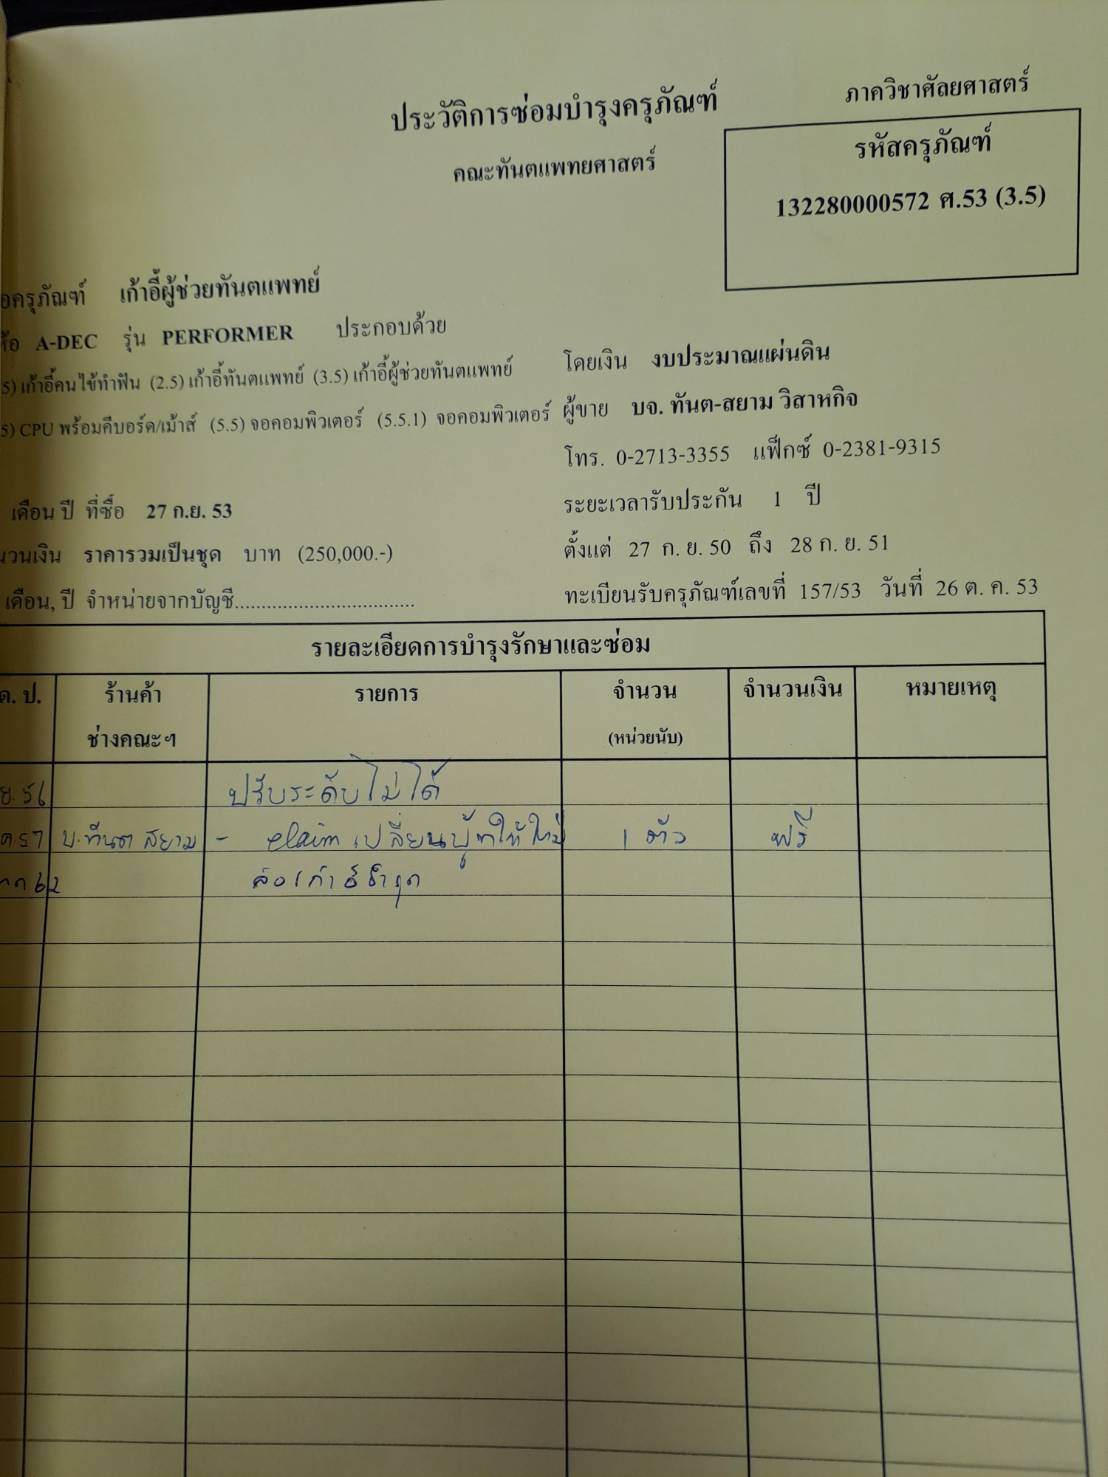 ประวัติการซ่อมบำรุงครุภัณฑ์
ภาควิชาศัลยศาสตร์
คณะทันตแพทยศาสตร์
รหัสครุภัณฑ์
132280000572 ศ.53 (3.5)
อครุภัณฑ์ เก้าอี้ผู้ช่วยทันตแพทย์
A-DEC รุ่น PERFORMER ประกอบด้วย
5) เก้าอี้คนไข้ทำฟัน (2.5) เก้าอี้ทันตแพทย์ (3.5) เก้าอี้ผู้ช่วยทันตแพทย์
โดยเงิน งบประมาณแผ่นดิน
5) CPU พร้อมคีบอร์ด/เม้าส์ (5.5) จอคอมพิวเตอร์ (5.5.1) จอคอมพิวเตอร์
ผู้ขาย บจ. ทันต-สยาม วิสาหกิจ
โทร. 0-2713-3355 แฟ็กซ์ 0-2381-9315
เดือน ปี ที่ซื้อ 27 ก.ย. 53
ระยะเวลารับประกัน 1 ปี
นวนเงิน ราคารวมเป็นชุด บาท (250,000.-)
ตั้งแต่ 27 ก. ย. 50 ถึง 28 ก. ย. 51
เดือน, ปี จำหน่ายจากบัญชี..................................
ทะเบียนรับครุภัณฑ์เลขที่ 157/53 วันที่ 26 ต. ค. 53
รายละเอียดการบำรุงรักษาและซ่อม
ด. ป. ร้านค้า รายการ จำนวน จำนวนเงิน หมายเหตุ
ช่างคณะฯ (หน่วยนับ)
ย. 56 ปรับระดับไม่ได้
ค 57 บ.ทันต สยาม - claim เปลี่ยน ให้ใหม่ 1 ตัว ฟรี
62 ชำรุด